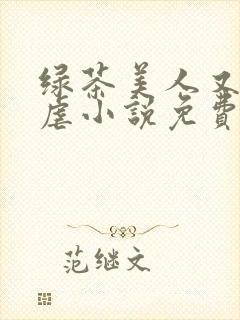 绿茶美人又
虐小說免費
范继文